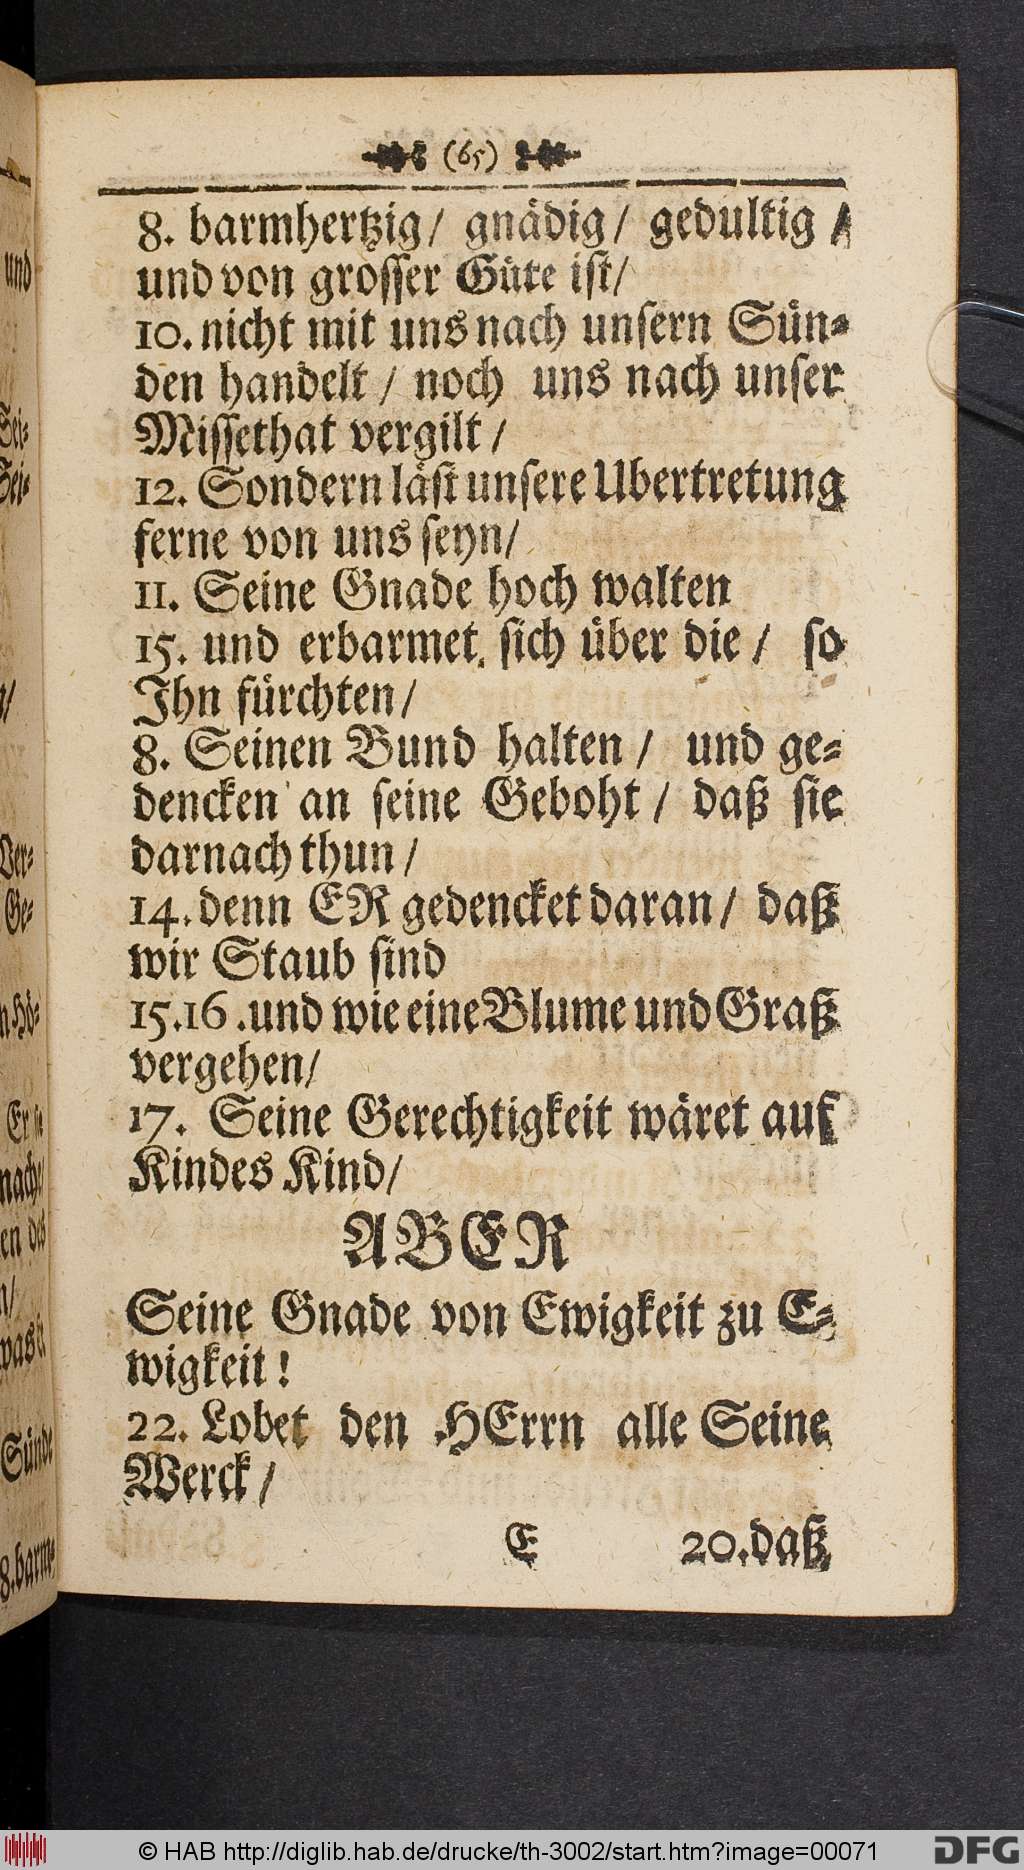 (65)
8. barmhertzig/ gnädig/ gedultig /
und von grosser Güte ist/
10. nicht mit uns nach unsern Sün-
den handelt / noch uns nach unser
Missethat vergilt /
12. Sondern läst unsere Ubertretung
ferne von uns seyn/
11. Seine Gnade hoch walten
15. und erbarmet sich über die / so
Ihn fürchten/
8. Seinen Bund halten / und ge-
dencken an seine Geboht / daß sie
darnach thun /
14. denn ER gedencket daran / daß
wir Staub sind
15.16. und wie eine Blume und Graß
vergehen/
17. Seine Gerechtigkeit wäret auf
Kindes Kind/
ABER
Seine Gnade von Ewigkeit zu E-
wigkeit!
22. Lobet den HErrn alle Seine
Werck /
E 20. daß
© HAB http://diglib.hab.de/drucke/th-3002/start.htm?image=00071
DFG